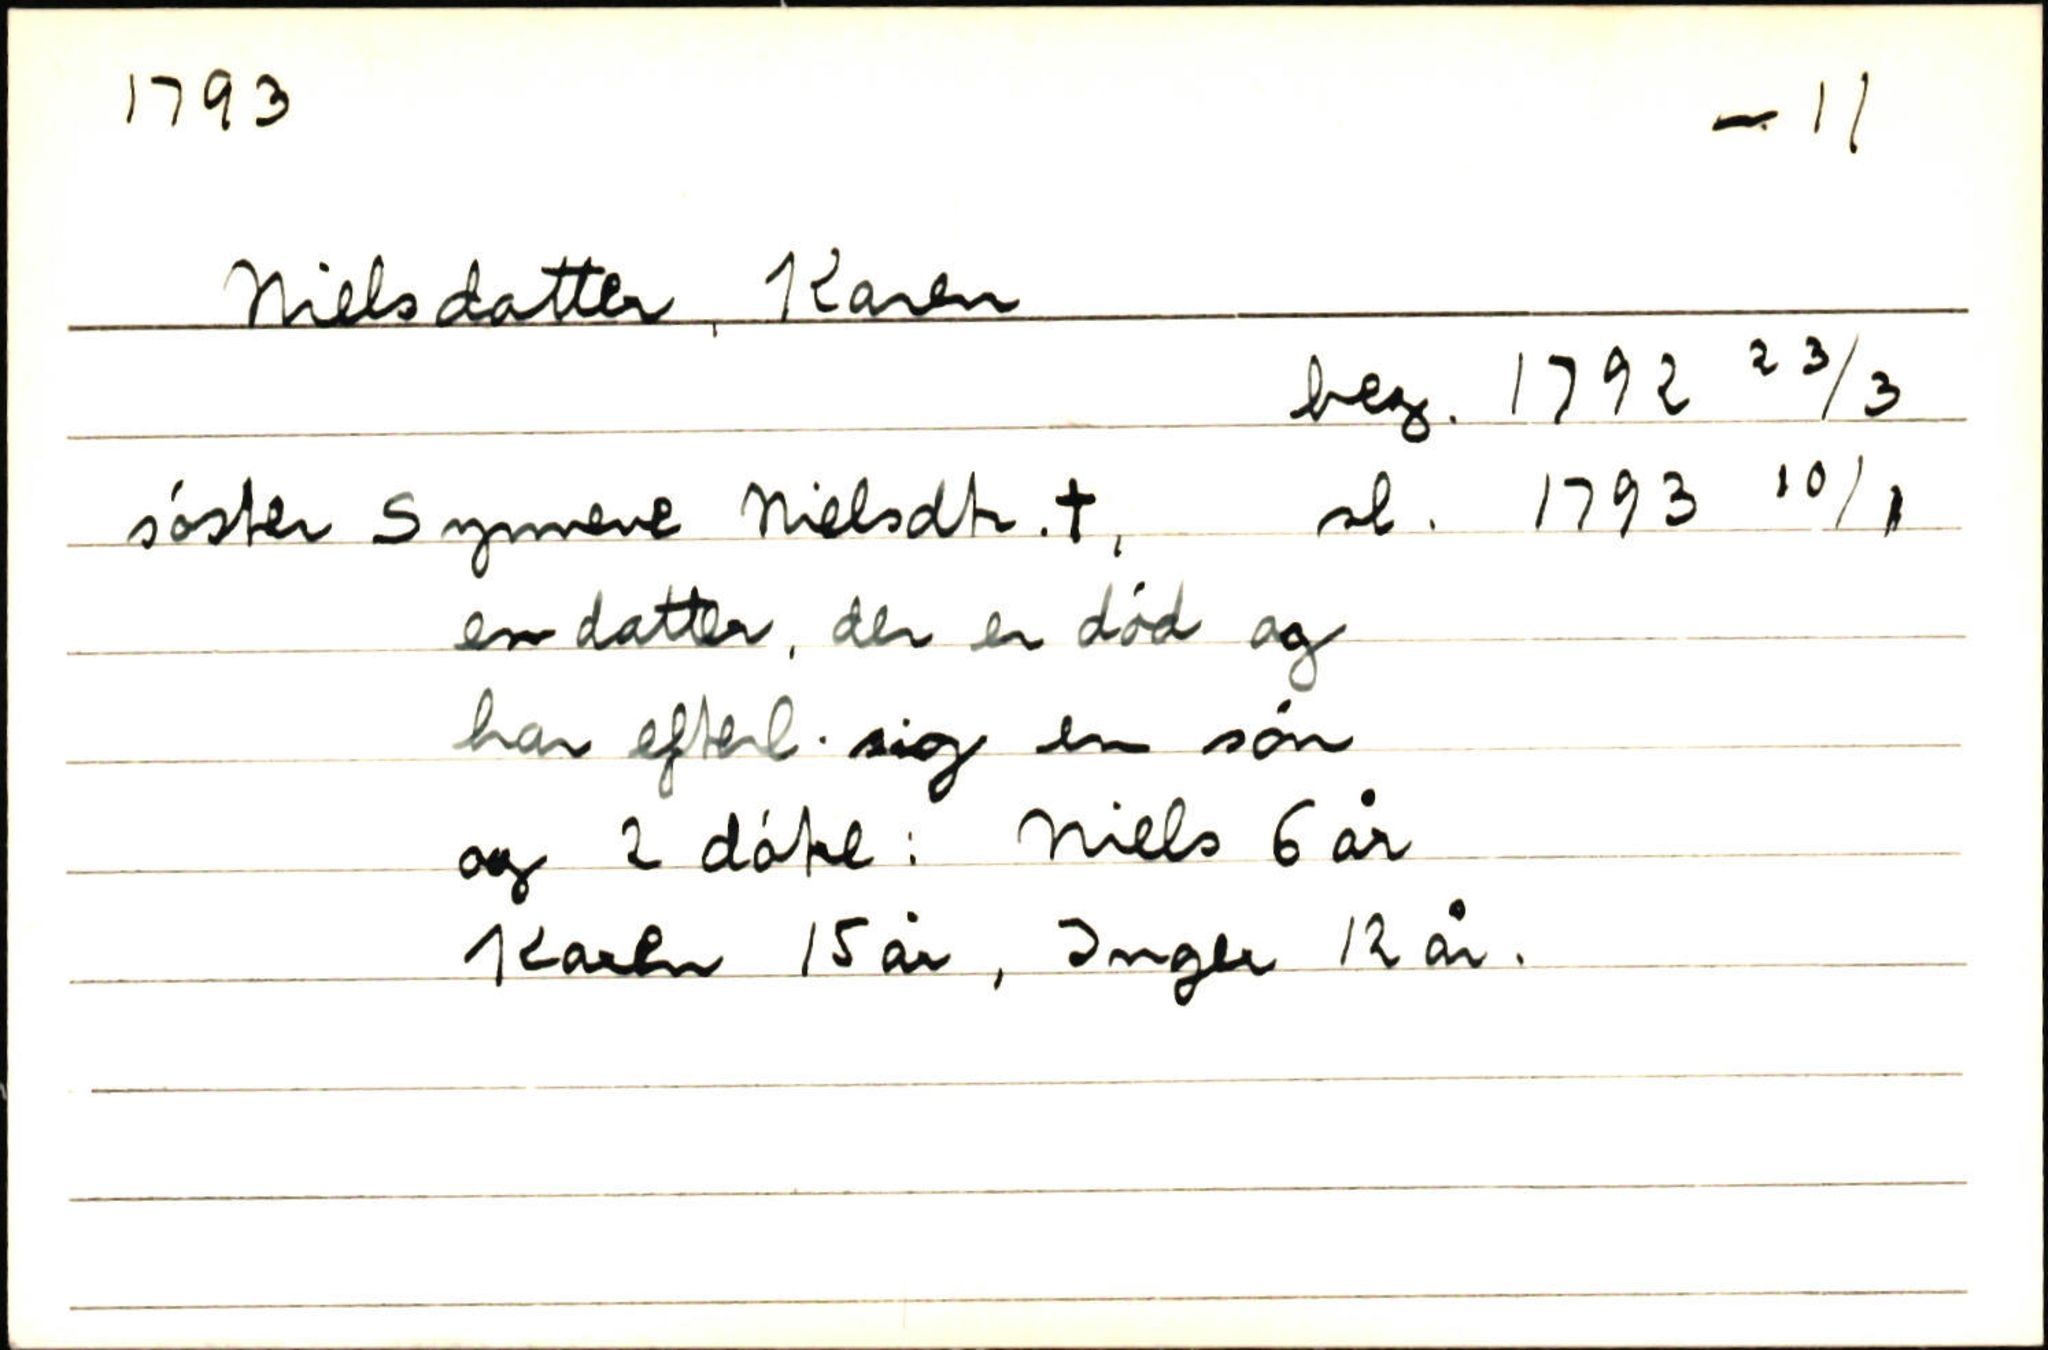 1793 - 11
Nielsdatter, Karen
beg. 1792 23/3
søster Synneve Nielsdtr. †, sl. 1793 10/1
en datter, der er død og
har efterl. sig en søn
og 2 døtre: Niels 6 år
Karen 15 år, Inger 12 år.